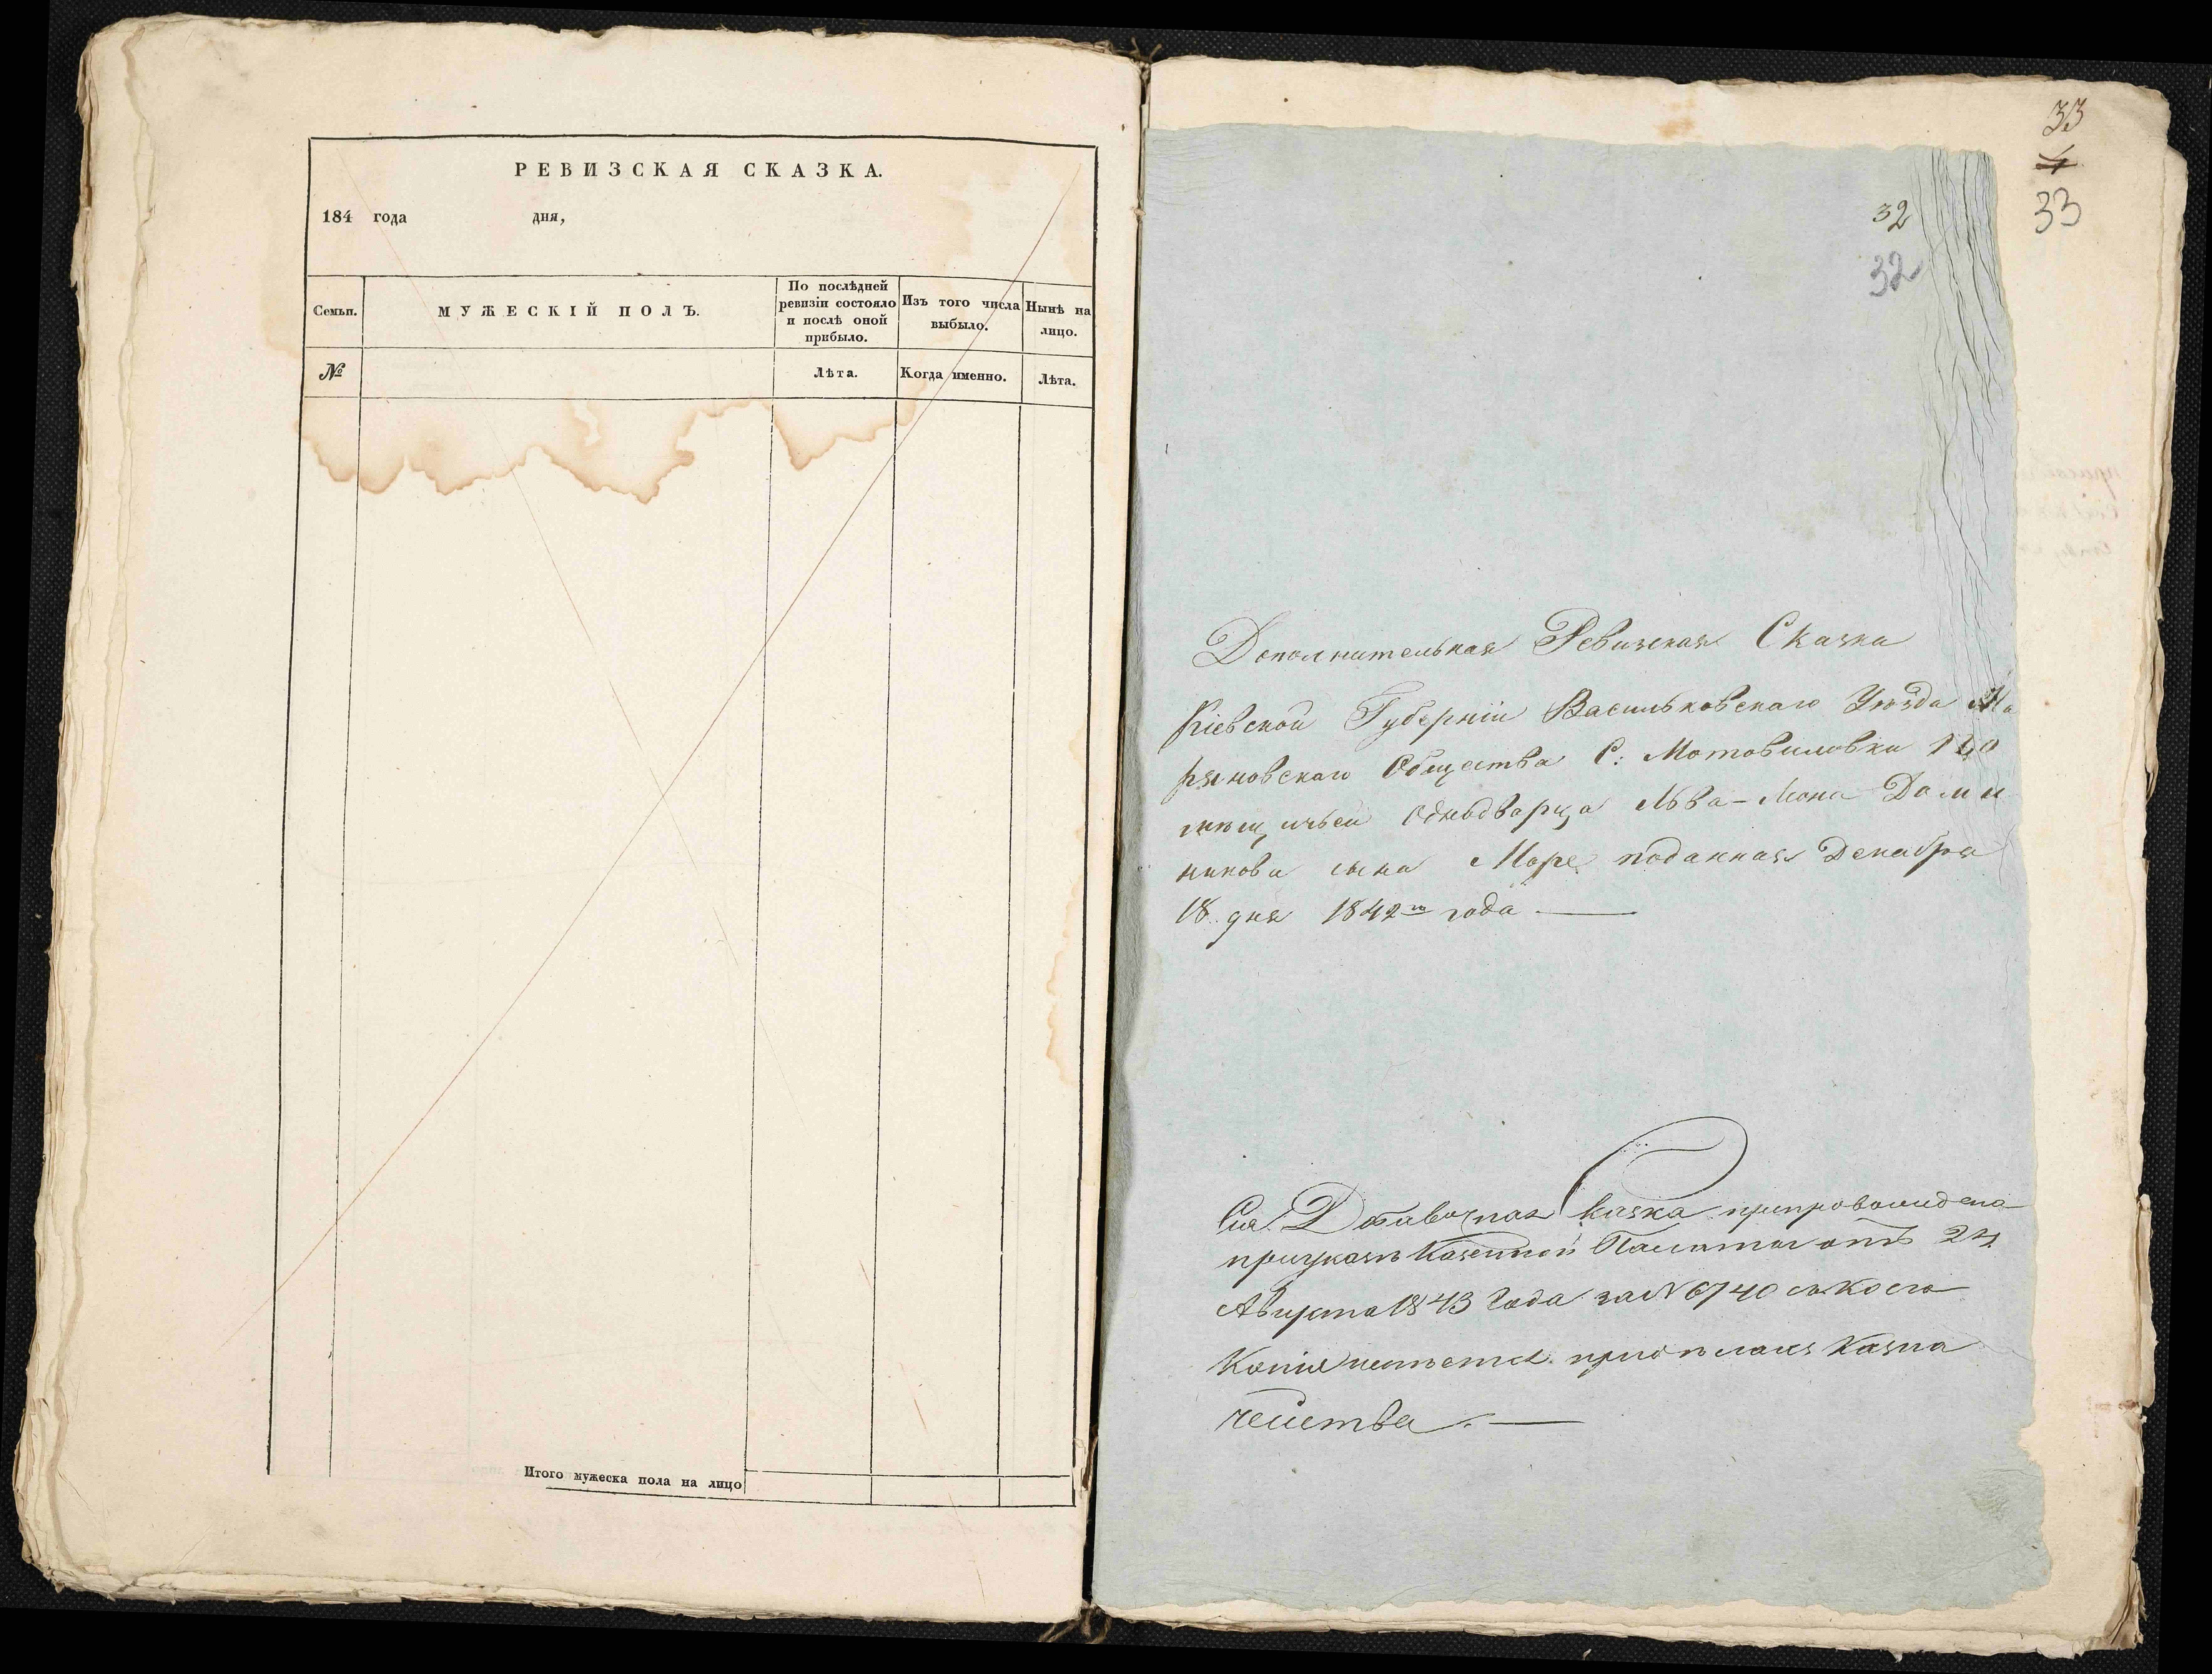 РЕВИЗСКАЯ СКАЗКА.
184 года дня,
Семьи.
МУЖЕСКІЙ ПОЛЪ.
По послѣдней
ревизіи состояло
и послѣ оной
прибыло.
Изъ того числа
выбыло.
Нынѣ на
лицо.
№
Лѣта.
Когда именно.
Лѣта.
Итого мужеска пола на лицо
33
33
32
32
Дополнительная Ревизская Сказка
Кіевской Губерніи Васильковскаго Уѣзда Ма
рьяновскаго Общества С: Мотовиловки По
мѣщичьей Однодворца Льва-Лиона Доми
никова сына Море поданная Декабря
18 дня 1842го года
Сія Добавочная Сказка препровождена
при указѣ Казенной Палаты отъ 24
Августа 1843 Года за № 6740 съ коего
Копія имѣется при дѣлахъ Казна
чейства.